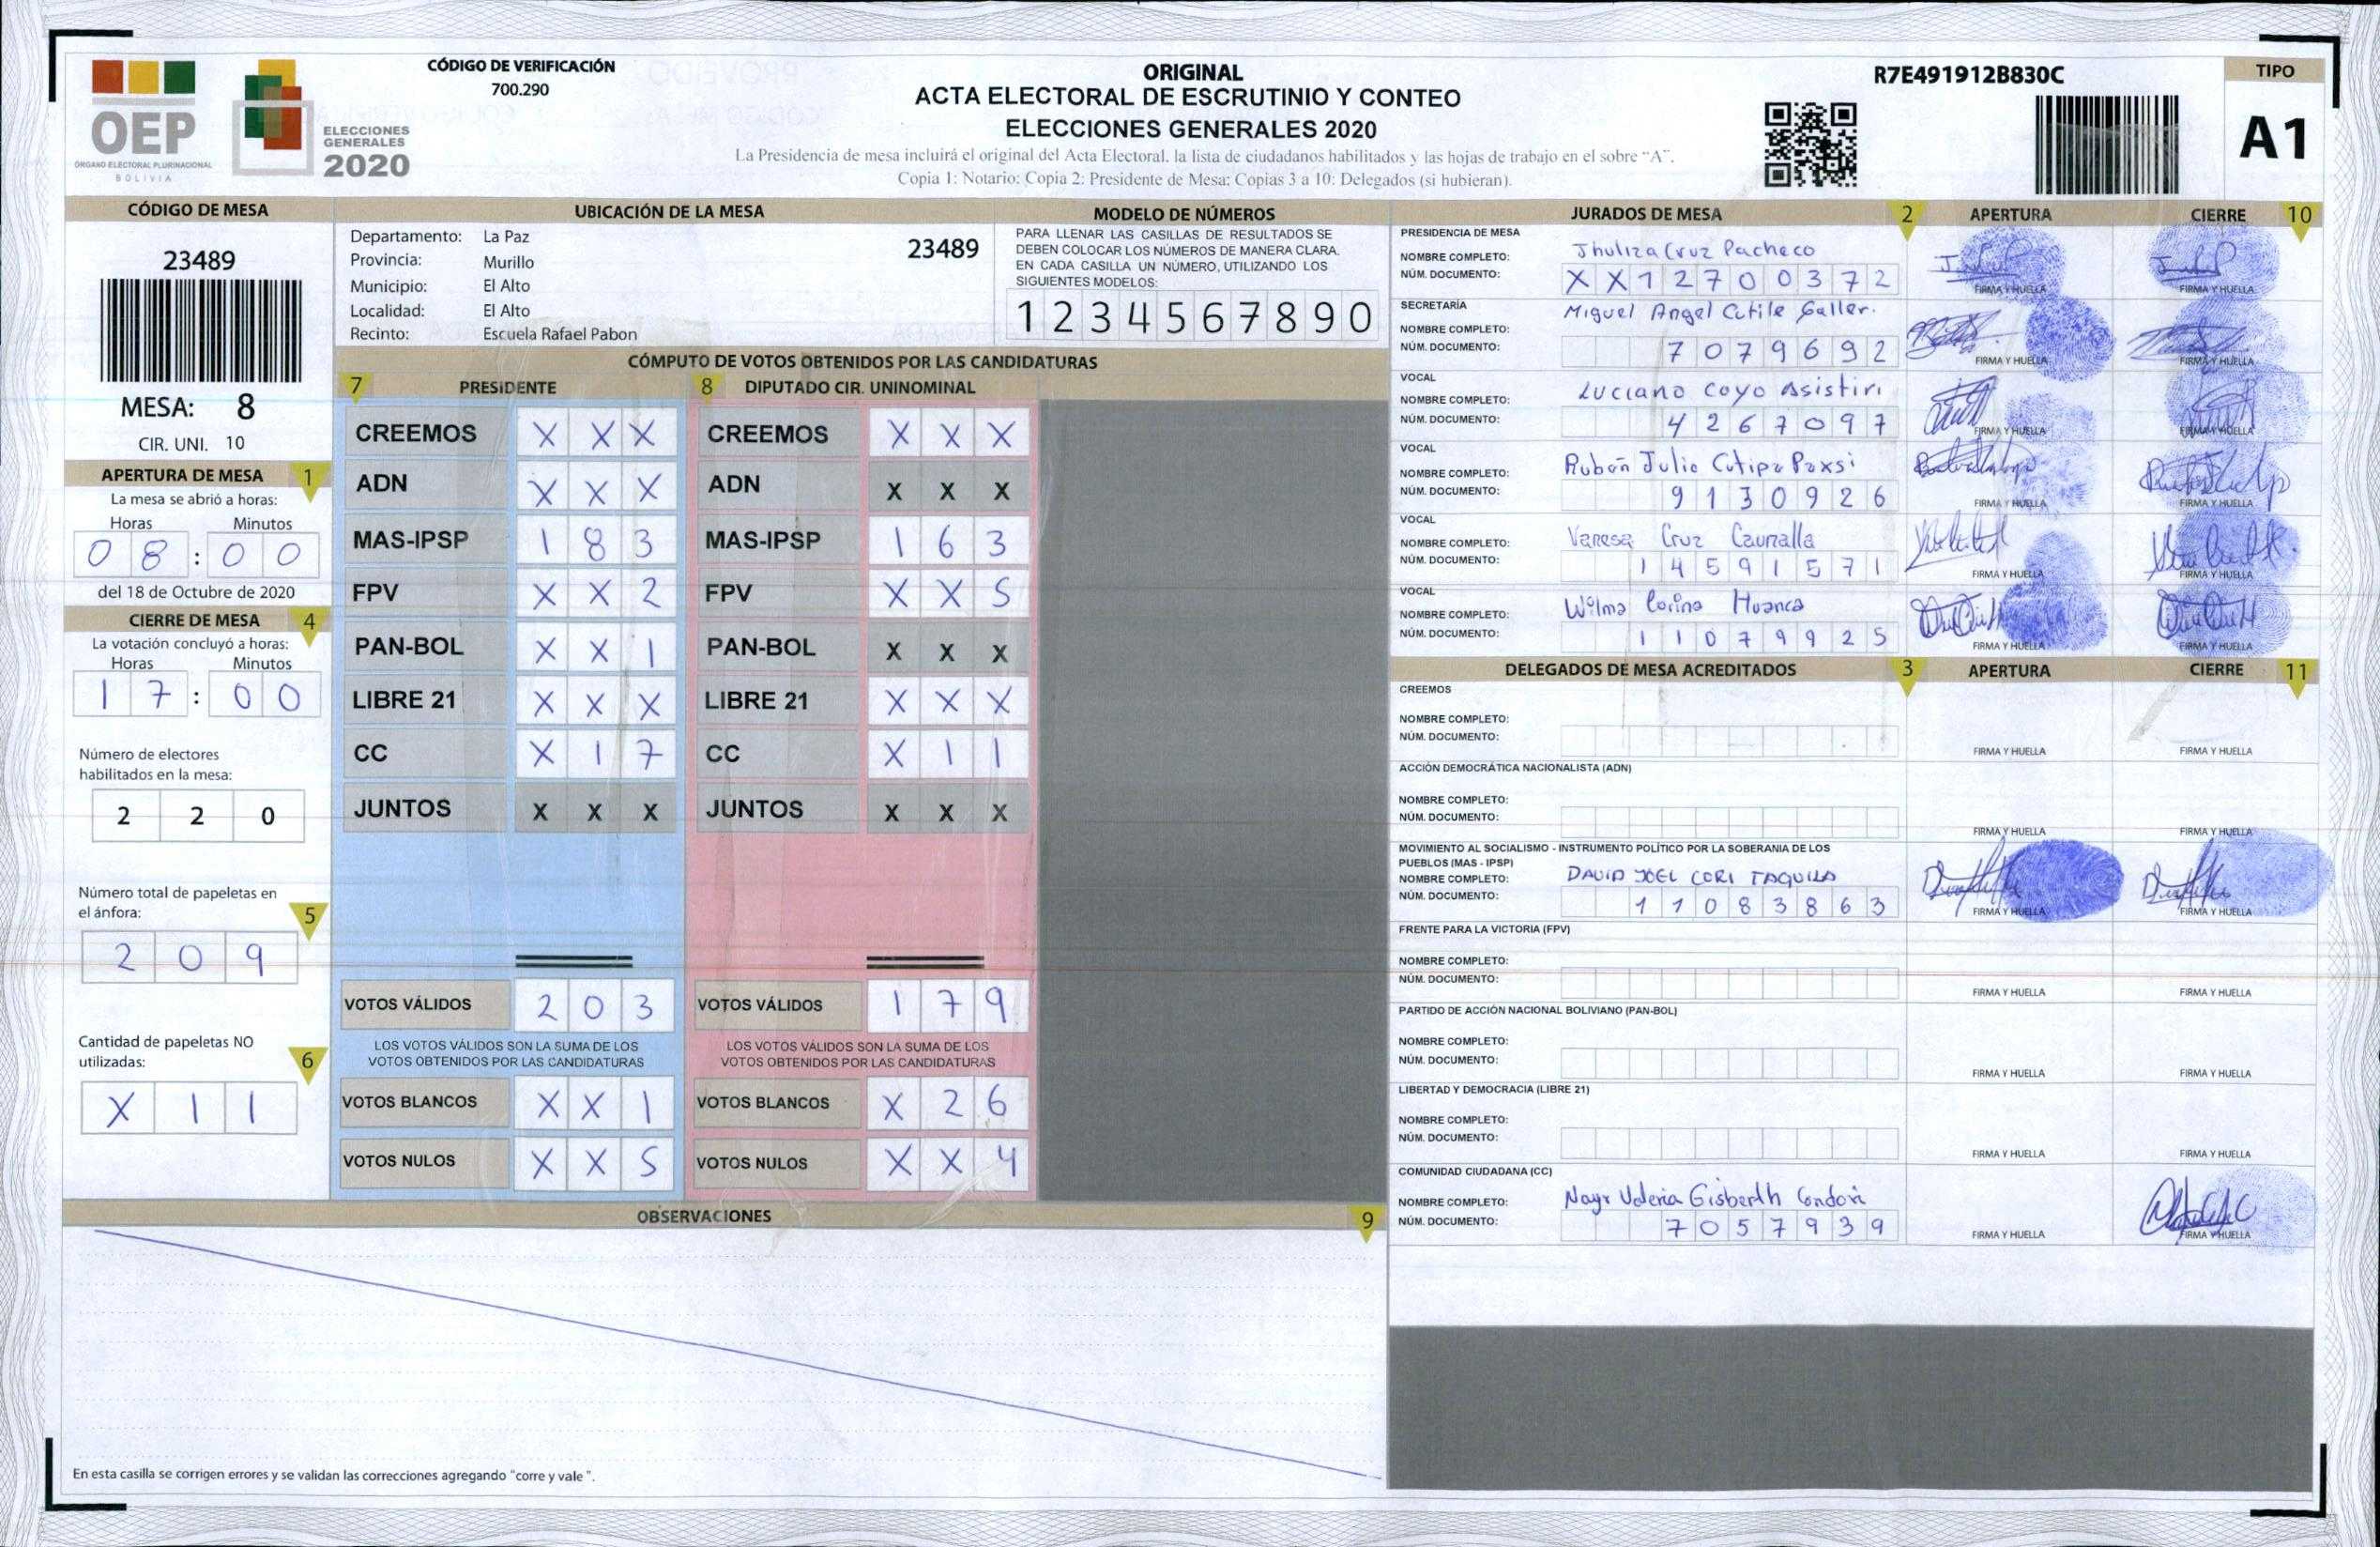 OEP
ÓRGANO ELECTORAL PLURINACIONAL
BOLIVIA
ELECCIONES
GENERALES
2020
CÓDIGO DE VERIFICACIÓN
700.290
ORIGINAL
ACTA ELECTORAL DE ESCRUTINIO Y CONTEO
ELECCIONES GENERALES 2020
La Presidencia de mesa incluirá el original del Acta Electoral, la lista de ciudadanos habilitados y las hojas de trabajo en el sobre "A".
Copia 1: Notario; Copia 2: Presidente de Mesa; Copias 3 a 10: Delegados (si hubieran).
R7E491912B830C
TIPO
A1
CÓDIGO DE MESA
23489
MESA: 8
CIR. UNI. 10
APERTURA DE MESA 1
La mesa se abrió a horas:
Horas Minutos
0 8 : 0 0
del 18 de Octubre de 2020
CIERRE DE MESA 4
La votación concluyó a horas:
Horas Minutos
1 7 : 0 0
Número de electores
habilitados en la mesa:
2 2 0
Número total de papeletas en
el ánfora: 5
2 0 9
Cantidad de papeletas NO
utilizadas: 6
X 1 1
UBICACIÓN DE LA MESA
Departamento: La Paz
23489
Provincia: Murillo
Municipio: El Alto
Localidad: El Alto
Recinto: Escuela Rafael Pabon
MODELO DE NÚMEROS
PARA LLENAR LAS CASILLAS DE RESULTADOS SE
DEBEN COLOCAR LOS NÚMEROS DE MANERA CLARA.
EN CADA CASILLA UN NÚMERO, UTILIZANDO LOS
SIGUIENTES MODELOS:
1 2 3 4 5 6 7 8 9 0
CÓMPUTO DE VOTOS OBTENIDOS POR LAS CANDIDATURAS
7 PRESIDENTE
CREEMOS X X X
ADN X X X
MAS-IPSP 1 8 3
FPV X X 2
PAN-BOL X X 1
LIBRE 21 X X X
CC X 1 7
JUNTOS X X X
VOTOS VÁLIDOS 2 0 3
LOS VOTOS VÁLIDOS SON LA SUMA DE LOS
VOTOS OBTENIDOS POR LAS CANDIDATURAS
VOTOS BLANCOS X X 1
VOTOS NULOS X X 5
8 DIPUTADO CIR. UNINOMINAL
CREEMOS X X X
ADN X X X
MAS-IPSP 1 6 3
FPV X X 5
PAN-BOL X X X
LIBRE 21 X X X
CC X 1 1
JUNTOS X X X
VOTOS VÁLIDOS 1 7 9
LOS VOTOS VÁLIDOS SON LA SUMA DE LOS
VOTOS OBTENIDOS POR LAS CANDIDATURAS
VOTOS BLANCOS X 2 6
VOTOS NULOS X X 4
OBSERVACIONES 9
En esta casilla se corrigen errores y se validan las correcciones agregando "corre y vale ".
JURADOS DE MESA 2 APERTURA CIERRE 10
PRESIDENCIA DE MESA
NOMBRE COMPLETO: Jhuliza Cruz Pacheco
NÚM. DOCUMENTO: X X 1 2 7 0 0 3 7 2
FIRMA Y HUELLA FIRMA Y HUELLA
SECRETARÍA
NOMBRE COMPLETO: Miguel Angel
NÚM. DOCUMENTO: 7 0 7 9 6 9 2
FIRMA Y HUELLA FIRMA Y HUELLA
VOCAL
NOMBRE COMPLETO: Luciano Coyo Asistiri
NÚM. DOCUMENTO: 4 2 6 7 0 9 7
FIRMA Y HUELLA FIRMA Y HUELLA
VOCAL
NOMBRE COMPLETO: Rubén Julio Cutipa Paxsi
NÚM. DOCUMENTO: 9 1 3 0 9 2 6
FIRMA Y HUELLA FIRMA Y HUELLA
VOCAL
NOMBRE COMPLETO: Vanesa Cruz
NÚM. DOCUMENTO: 1 4 5 9 1 5 7 1
FIRMA Y HUELLA FIRMA Y HUELLA
VOCAL
NOMBRE COMPLETO: Wilma Corina Huanca
NÚM. DOCUMENTO: 1 1 0 7 9 9 2 5
FIRMA Y HUELLA FIRMA Y HUELLA
DELEGADOS DE MESA ACREDITADOS 3 APERTURA CIERRE 11
CREEMOS
NOMBRE COMPLETO:
NÚM. DOCUMENTO:
FIRMA Y HUELLA FIRMA Y HUELLA
ACCIÓN DEMOCRÁTICA NACIONALISTA (ADN)
NOMBRE COMPLETO:
NÚM. DOCUMENTO:
FIRMA Y HUELLA FIRMA Y HUELLA
MOVIMIENTO AL SOCIALISMO - INSTRUMENTO POLÍTICO POR LA SOBERANIA DE LOS
PUEBLOS (MAS - IPSP)
NOMBRE COMPLETO: DAVID JOEL CORI TAQUILA
NÚM. DOCUMENTO: 1 1 0 8 3 8 6 3
FIRMA Y HUELLA FIRMA Y HUELLA
FRENTE PARA LA VICTORIA (FPV)
NOMBRE COMPLETO:
NÚM. DOCUMENTO:
FIRMA Y HUELLA FIRMA Y HUELLA
PARTIDO DE ACCIÓN NACIONAL BOLIVIANO (PAN-BOL)
NOMBRE COMPLETO:
NÚM. DOCUMENTO:
FIRMA Y HUELLA FIRMA Y HUELLA
LIBERTAD Y DEMOCRACIA (LIBRE 21)
NOMBRE COMPLETO:
NÚM. DOCUMENTO:
FIRMA Y HUELLA FIRMA Y HUELLA
COMUNIDAD CIUDADANA (CC)
NOMBRE COMPLETO: Valeria Gisberth Condori
NÚM. DOCUMENTO: 7 0 5 7 9 3 9
FIRMA Y HUELLA FIRMA Y HUELLA